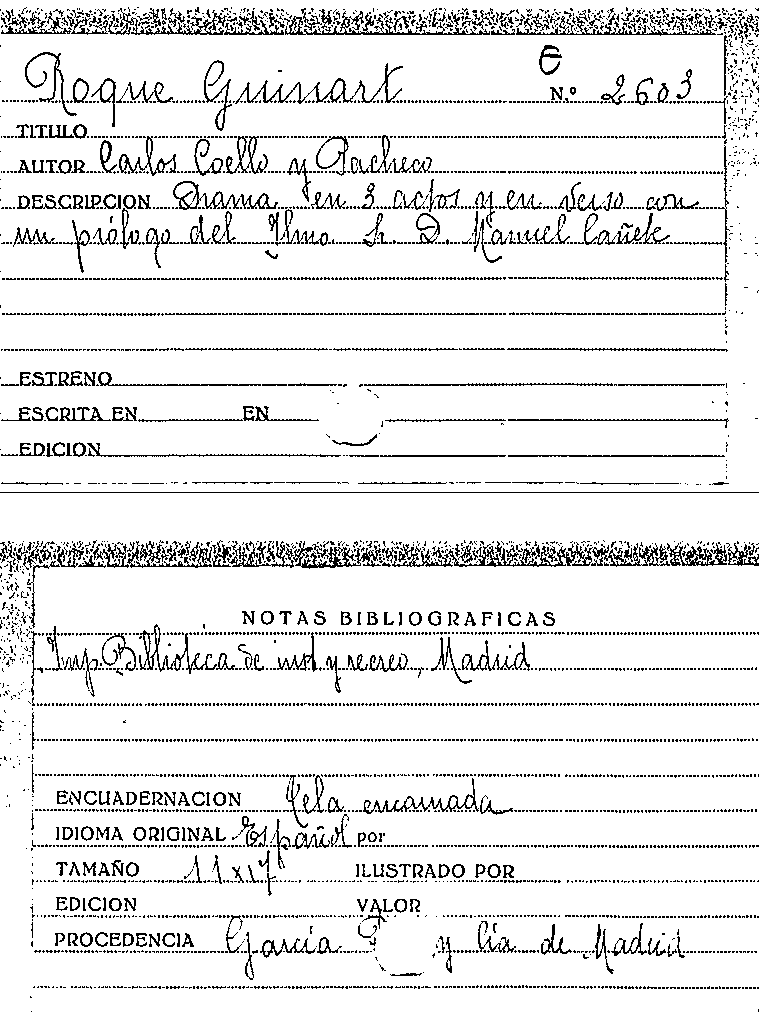 Roque Guinart
N.º 2603
TITULO
AUTOR Carlos Coello y Pacheco
DESCRIPCION Drama en 3 actos y en verso con
un prólogo del Ilmo. Sr. D. Manuel Cañete
ESTRENO
ESCRITA EN EN
EDICION
NOTAS BIBLIOGRAFICAS
Imp. Biblioteca de inst. y recreo, Madrid
ENCUADERNACION Tela encarnada
IDIOMA ORIGINAL Español por
TAMAÑO 11x17 ILUSTRADO POR
EDICION VALOR
PROCEDENCIA García y Cía de Madrid